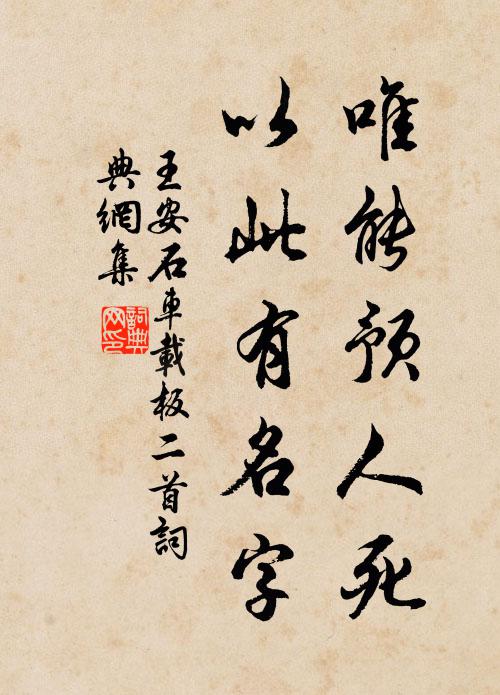 唯能預人死
以此有名字
王安石車載板二首詞
典網集
詞典网印